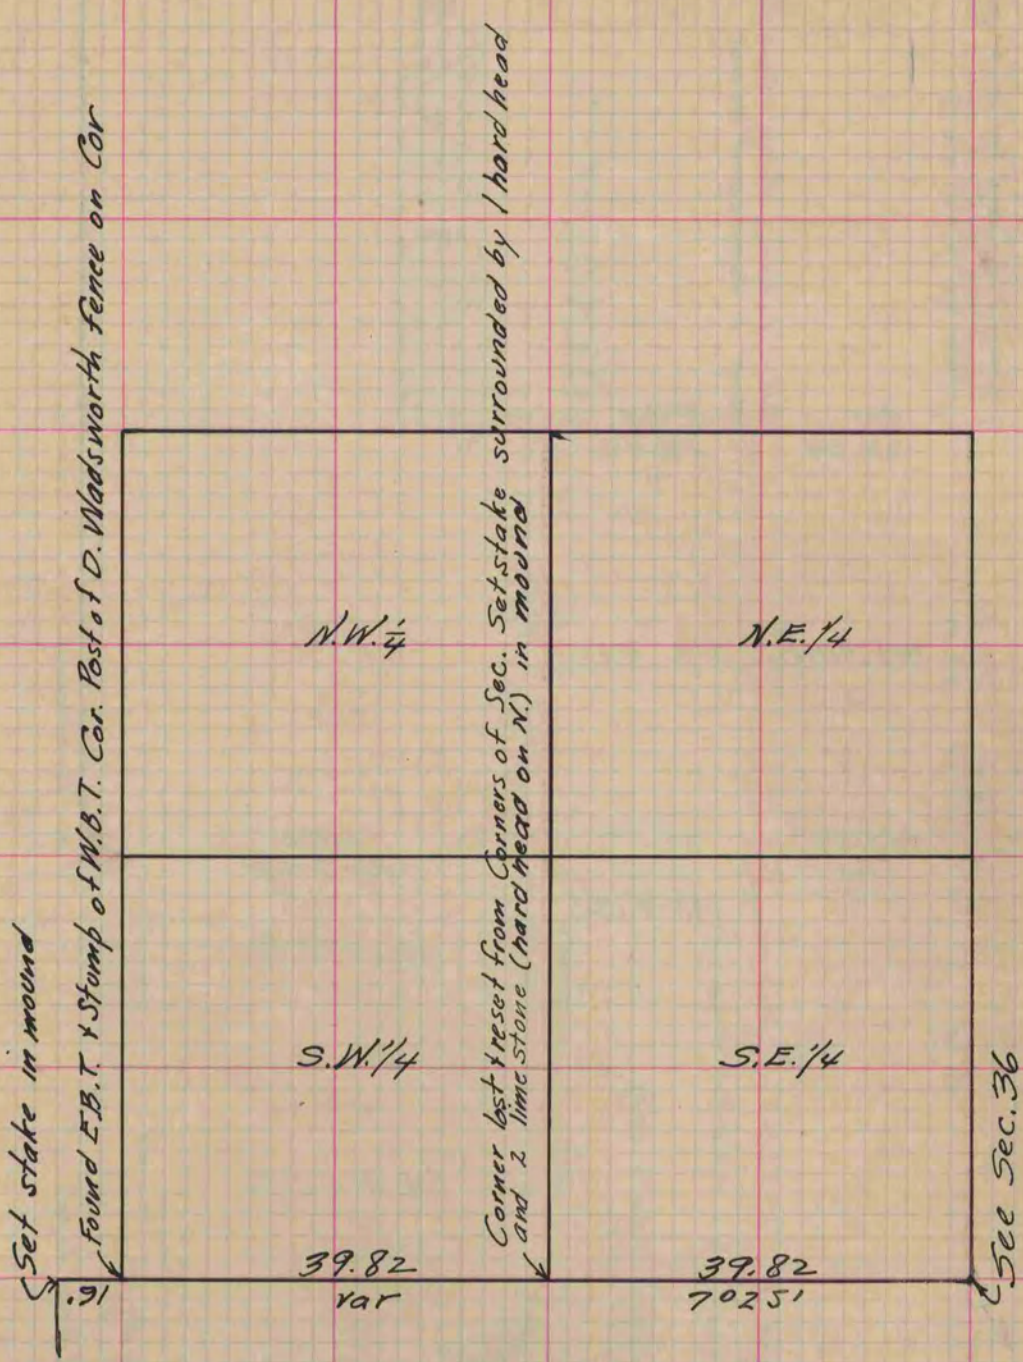 Set stake in mound
Found E.B.T. & Stump of W.B.T. Cor. Post of D. Wadsworth fence on Cor
Corner lost & reset from Corners of Sec. Set stake surrounded by 1 hard head
and 2 lime stone (hard head on N.) in mound
N.W. 1/4
N.E. 1/4
S.W. 1/4
S.E. 1/4
.91
39.82
var
39.82
7°25'
See Sec. 36